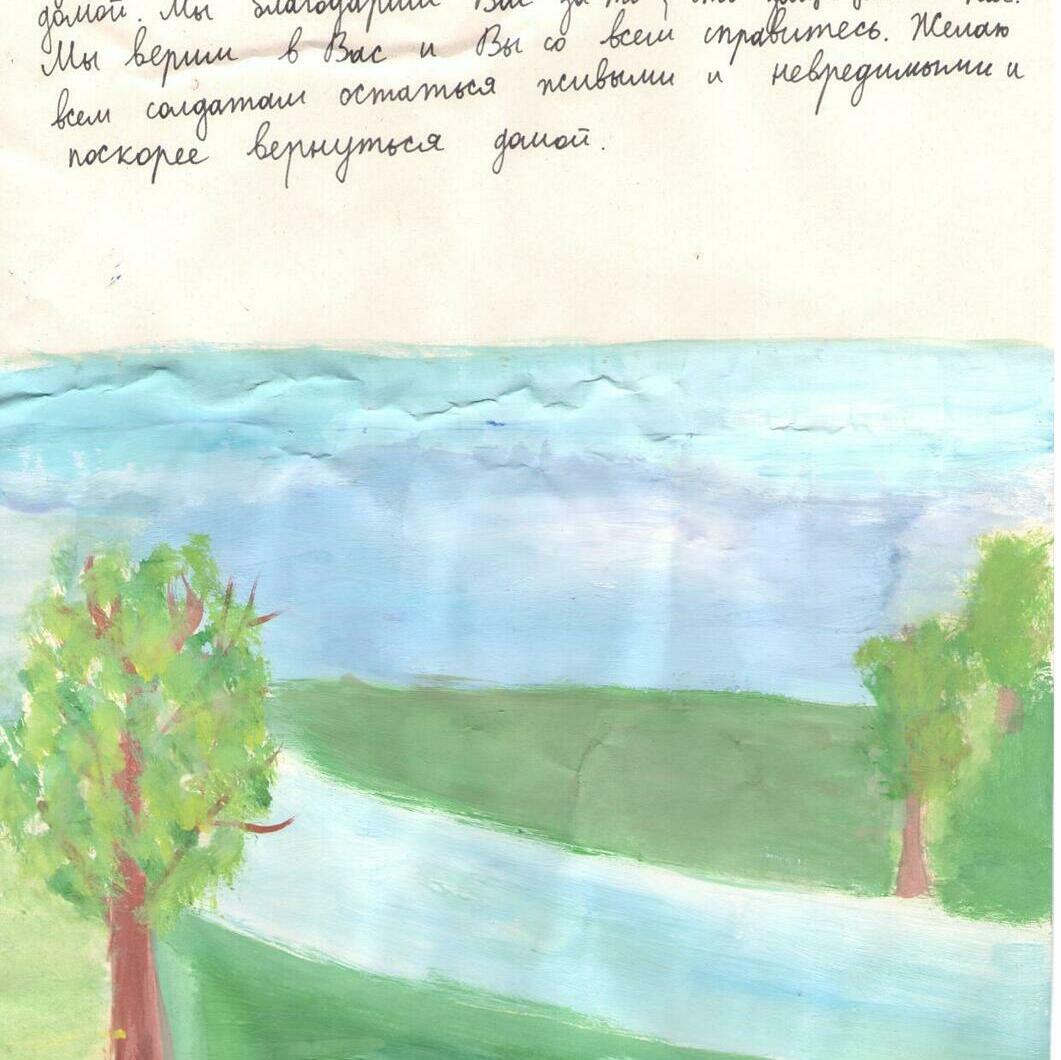 домой. Мы благодарим Вас за то, что
Мы верим в Вас и Вы со всем справитесь. Желаю
всем солдатам остаться живыми и невредимыми и
поскорее вернуться домой.